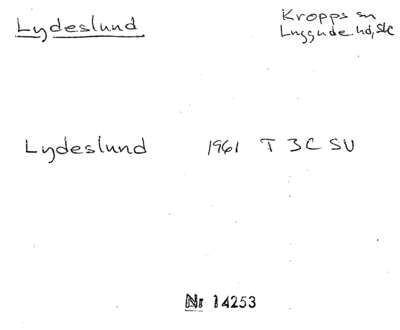 Lydeslund
Kropps sn
Luggude hd, Sk
Lydeslund 1961 T 3C SV
Nr 14253